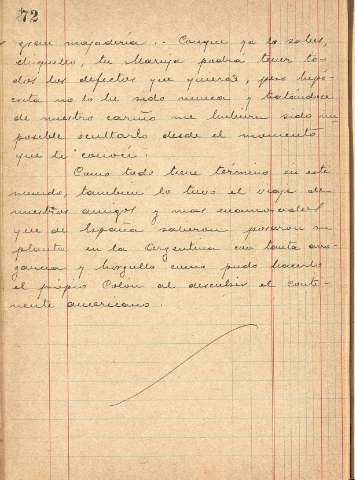 72
gran majadería... Conque ya lo sabes,
Miguelo, tu Maruja podrá tener to-
dos los defectos que quieras, pero hipó-
crita no lo he sido nunca y tratándose
de nuestro cariño me hubiera sido im-
posible ocultarlo desde el momento
que te conocí.
Como todo tiene término en este
mundo, tambien lo tuvo el viaje de
nuestros amigos y mas enamorados
que de España salieron, posaron su
planta en la Argentina con tanta arro-
gancia y orgullo como pudo hacerlo
el propio Colon al descubrir el conti-
nente americano.